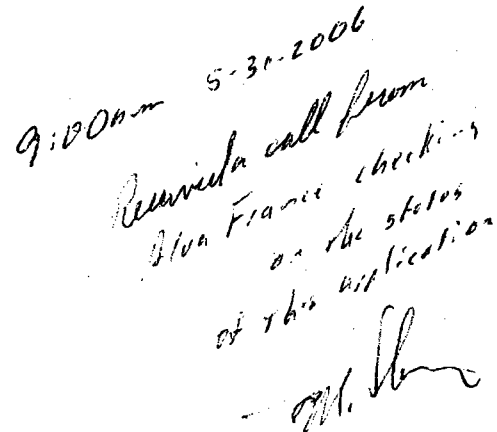 9:00am 5-31-2006
Received a call from
Alva France checking
on the status
of this application
- M.